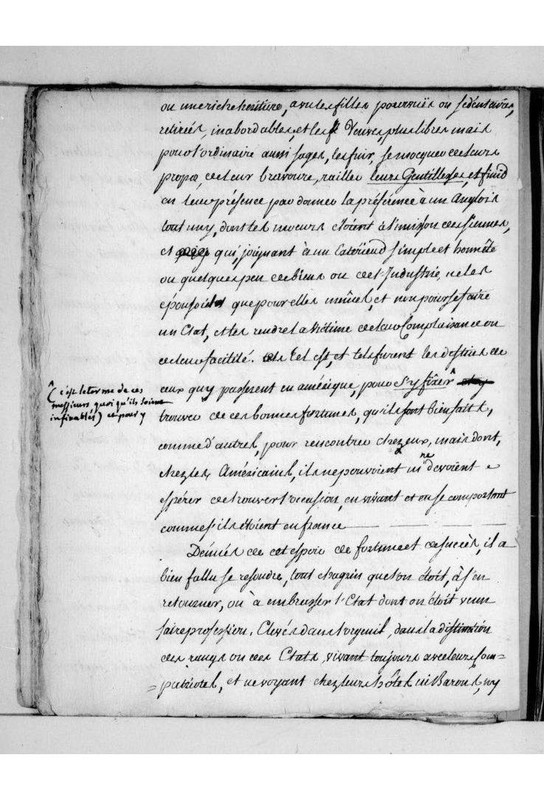 ou une riche héritiere, a vu les filles pourvues ou sédentaires,
retirées, inabordables, et les Veuves, plus libres mais
pour l'ordinaire aussi sages, les fuir, se mocquer de leurs
propos, de leur bravoure, railler leurs Gentillesses, et finir
en leur présence par donner la préférence à un Anglois
tout uny, dont les moeurs étoient à l'unisson des siennes,
et qui, joignant à un Extérieur simple et honnête
ou quelque peu de biens ou de l'Industrie, ne les
épousoit que pour elles mêmes, et non pour se faire
un Etat, et les rendre la victime de leur Complaisance ou
de leur facilité. Tel est, et tels furent les destins de
ceux qui passerent en amérique, pour s'y fixer
(c'est le terme de ces
messieurs, quoi qu'ils soient
infixables) et pour y
trouver de ces bonnes fortunes, qu'ils sont bien faits,
comme d'autres, pour rencontrer chez eux, mais dont,
chez les Américains, ils ne pouvoient ni ne devoient
espérer de trouver l'occasion, en vivant et en se comportant
comme s'ils étoient en france
Dénués de cet espoir de fortune et de succès, il a
bien fallu se résoudre, tout chagrin que l'on étoit, à s'en
retourner, ou à embrasser l'Etat dont on étoit venu
faire profession. Elevés dans l'orgueil, dans la distinction
des rangs ou des Etats, vivant toujours avec leurs Com=
=patriotes, et ne voyant chez leurs hôtes ni Barons, ny